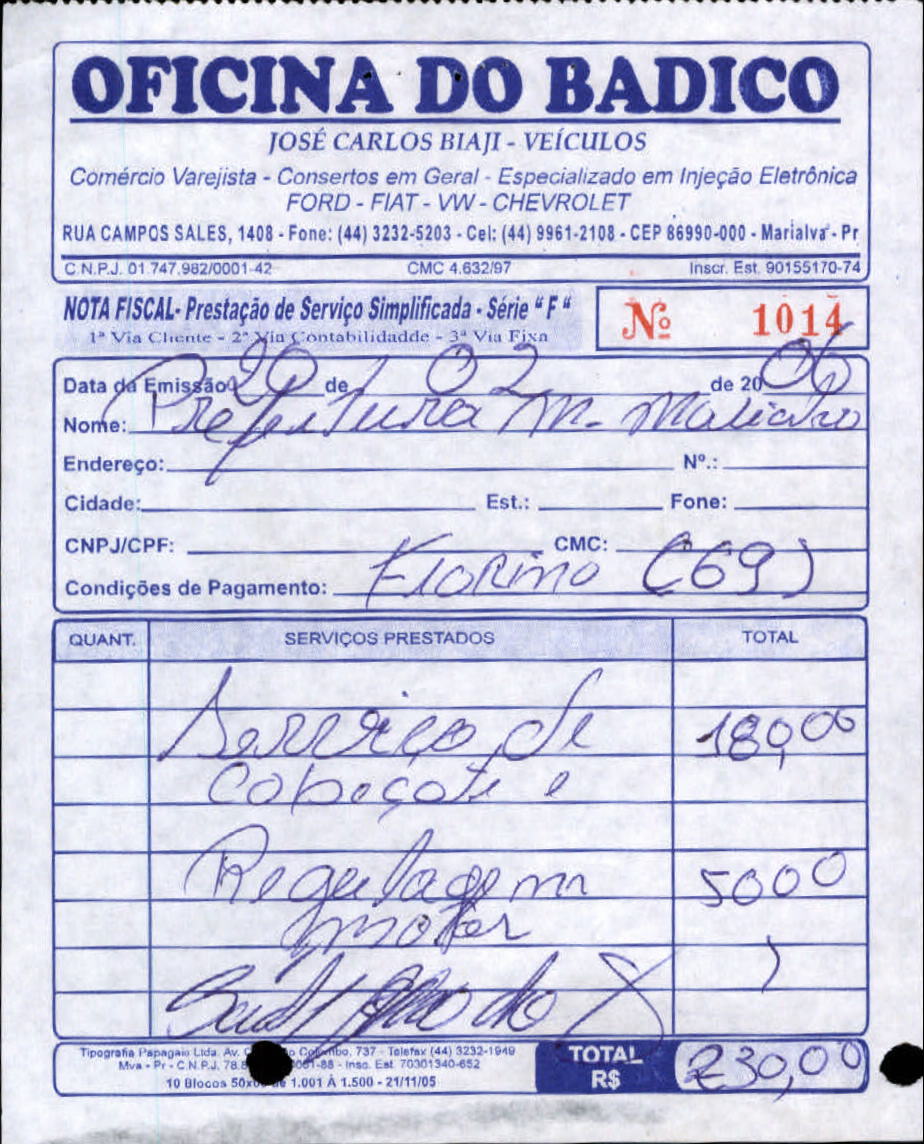 OFICINA DO BADICO
JOSÉ CARLOS BIAJI - VEÍCULOS
Comércio Varejista - Consertos em Geral - Especializado em Injeção Eletrônica
FORD - FIAT - VW - CHEVROLET
RUA CAMPOS SALES, 1408 - Fone: (44) 3232-5203 - Cel: (44) 9961-2108 - CEP 86990-000 - Marialva - Pr
C.N.P.J. 01.747.982/0001-42 CMC 4.632/97 Inscr. Est. 90155170-74
NOTA FISCAL- Prestação de Serviço Simplificada - Série " F "
1ª Via Cliente - 2ª Via Contabilidadde - 3ª Via Fixa
Nº 1014
Data da Emissão 20 de 02 de 2006
Nome: Prefeitura M.
Endereço: Nº.:
Cidade: Est.: Fone:
CNPJ/CPF: CMC:
Condições de Pagamento: Fiorino (69)
QUANT. SERVIÇOS PRESTADOS TOTAL
Serviço de 180,00
Cabeçote e
Regulagem 5000
motor
Tipografia Papagaio Ltda. Av. Colombo, 737 - Telefax (44) 3232-1949
Mva - Pr - C.N.P.J. 78.8 -88 - Insc. Est. 70301340-652
10 Blocos 50x de 1.001 À 1.500 - 21/11/05
TOTAL R$ 230,00